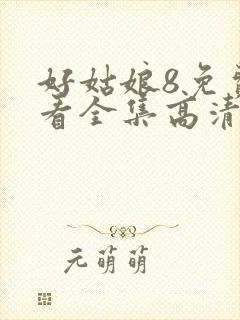 好姑娘8免
看全集高清
元萌萌